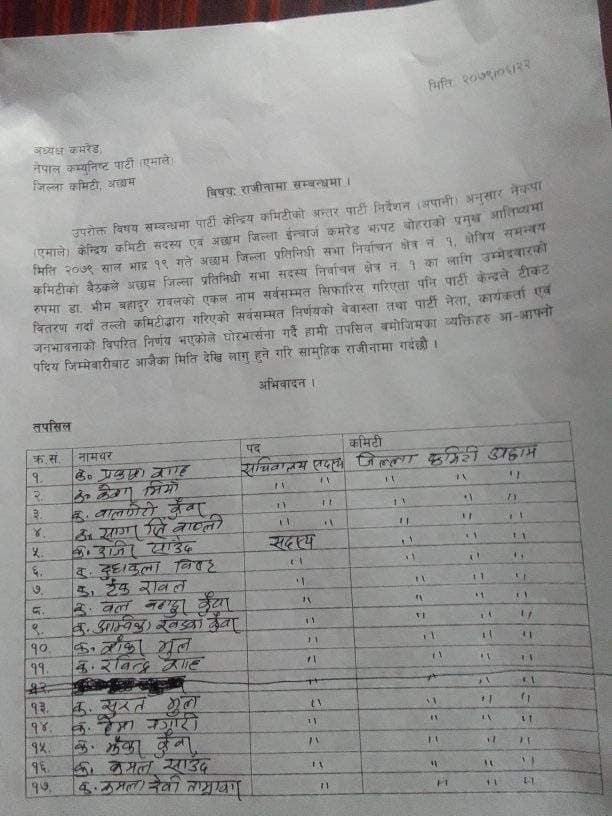 मिति २०७९/०६/२२
अध्यक्ष कमरेड,
नेपाल कम्युनिष्ट पार्टी (एमाले)
जिल्ला कमिटी, अछाम
विषय: राजीनामा सम्बन्धमा ।
उपरोक्त विषय सम्बन्धमा पार्टी केन्द्रिय कमिटीको अन्तर पार्टी निर्देशन (अपानी) अनुसार नेकपा
(एमाले) केन्द्रिय कमिटी सदस्य एवं अछाम जिल्ला ईन्चार्ज कमरेड झपट बोहराको प्रमुख आतिथ्यमा
मिति २०७९ साल भाद्र १९ गते अछाम जिल्ला प्रतिनिधी सभा निर्वाचन क्षेत्र नं १, क्षेत्रिय समन्वय
कमिटीको बैठकले अछाम जिल्ला प्रतिनिधी सभा सदस्य निर्वाचन क्षेत्र नं. १ का लागि उम्मेदवारको
रुपमा डा. भीम बहादुर रावलको एकल नाम सर्वसम्मत सिफारिस गरिएता पनि पार्टी केन्द्रले टीकट
वितरण गर्दा तल्लो कमिटीद्वारा गरिएको सर्वसम्मत निर्णयको बेवास्ता तथा पार्टी नेता, कार्यकर्ता एवं
जनभावनाको विपरित निर्णय भएकोले घोरभर्त्सना गर्दै हामी तपसिल बमोजिमका व्यक्तिहरु आ-आफ्नो
पदिय जिम्मेबारीबाट आजैका मिति देखि लागु हुने गरि सामुहिक राजीनामा गर्दछौ ।
अभिवादन ।
तपसिल
क्र.सं. नामथर पद कमिटी
१. क. प्रकाश शाह सचिवालय सदस्य जिल्ला कमिटी अछाम
२. क. " " " " "
३. क. कुँवर " " " " "
४. क. " " " " "
५. क. साउँद सदस्य " " "
६. क. " " " "
७. क. टेक रावल " " " "
८. क. कुँवर " " " "
९. क. अम्बिका खड्का कुँवर " " " "
१०. क. भुल " " " "
११. क. रविन्द्र शाह " " " "
१२ " " " "
१३. क. सुरत भुल " " " "
१४. क. " " " "
१५. क. कुँवर " " " "
१६. क. कमल साउँद " " " "
१७. क. कमला देवी " " " "